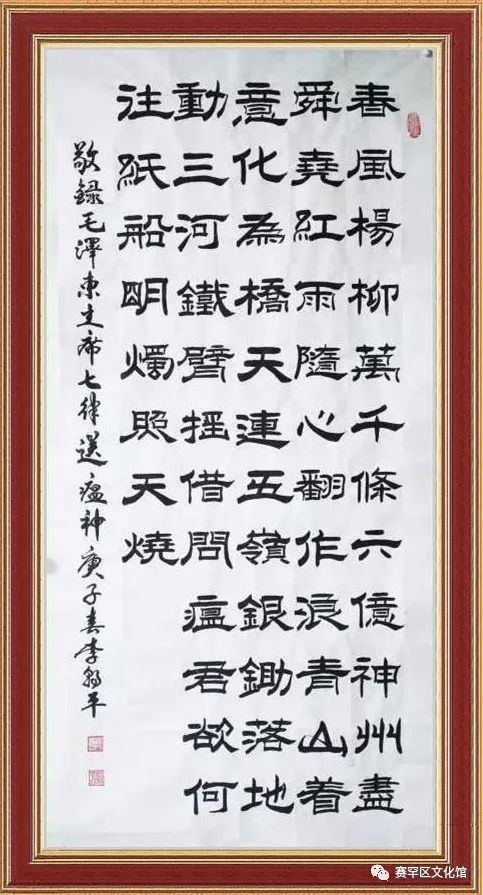 春風楊柳萬千條六億神州盡
舜堯紅雨隨心翻作浪青山着
意化為橋天連五嶺銀鋤落地
動三河鐵臂摇借問瘟君欲何
往紙船明燭照天燒
敬録毛澤東主席七律送瘟神庚子春李平
赛罕区文化馆